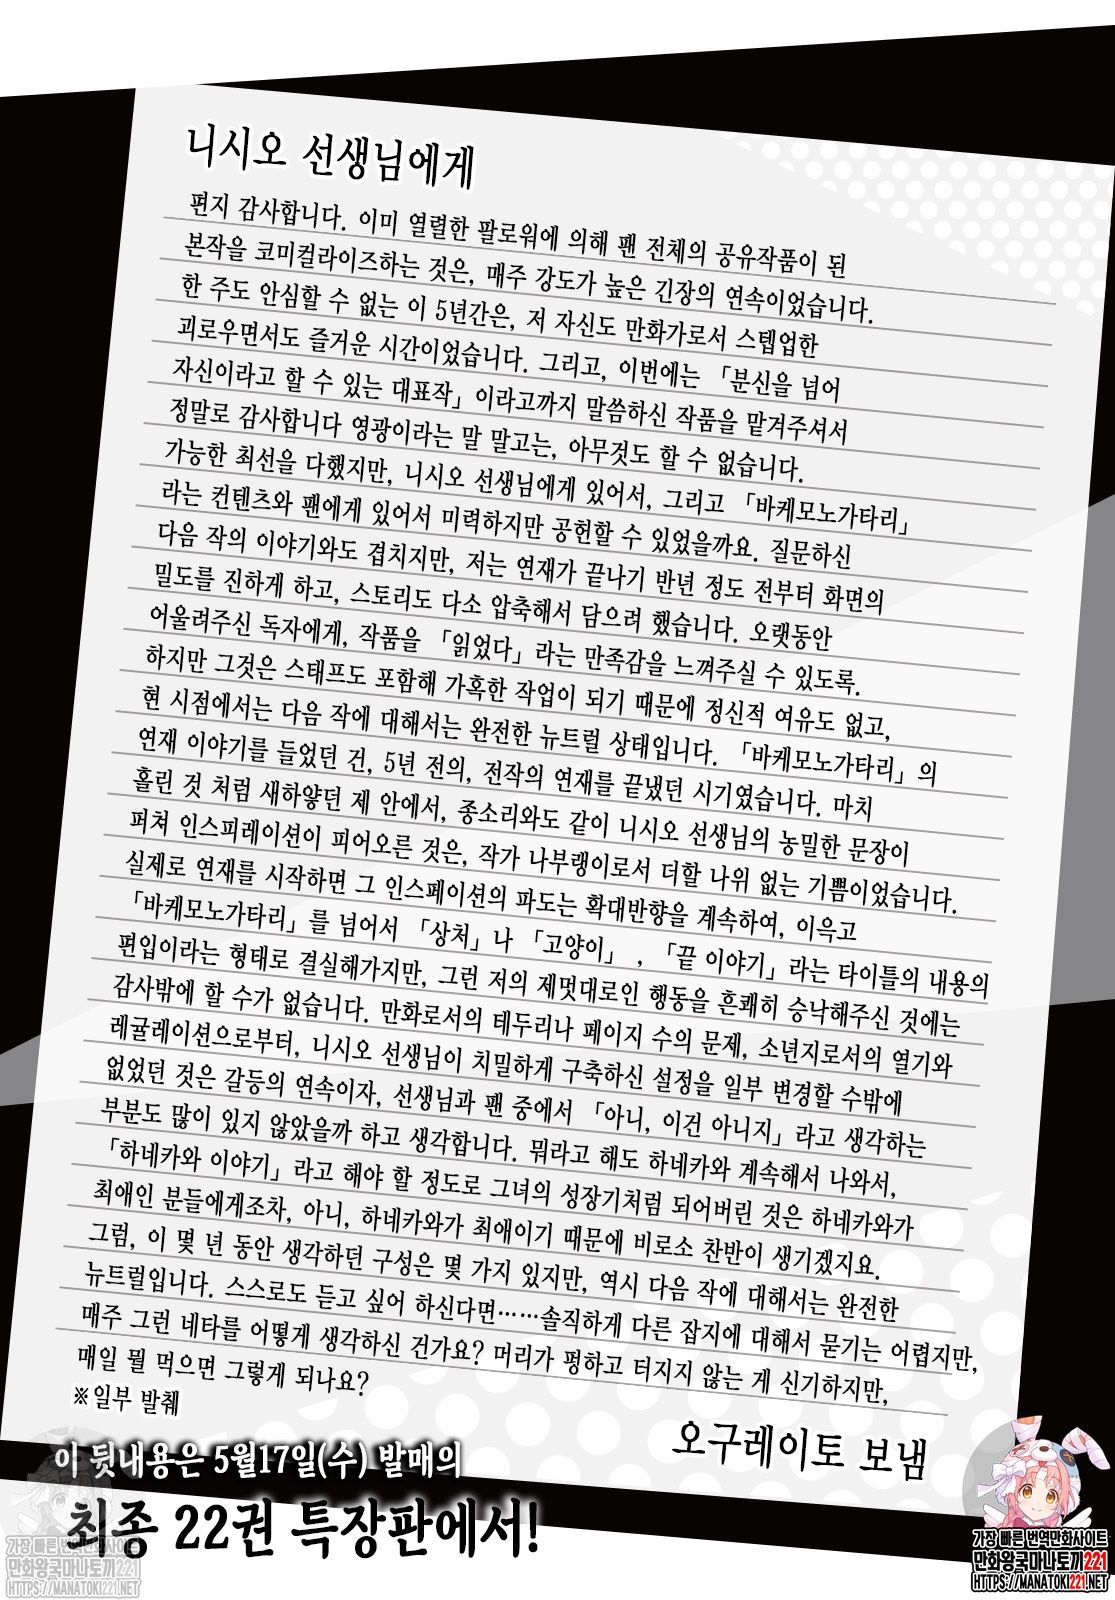 니시오 선생님에게
편지 감사합니다. 이미 열렬한 팔로워에 의해 팬 전체의 공유작품이 된
본작을 코미컬라이즈하는 것은, 매주 강도가 높은 긴장의 연속이었습니다.
한 주도 안심할 수 없는 이 5년간은, 저 자신도 만화가로서 스텝업한
괴로우면서도 즐거운 시간이었습니다. 그리고, 이번에는 「분신을 넘어
자신이라고 할 수 있는 대표작」이라고까지 말씀하신 작품을 맡겨주셔서
정말로 감사합니다 영광이라는 말 말고는, 아무것도 할 수 없습니다.
가능한 최선을 다했지만, 니시오 선생님에게 있어서, 그리고 「바케모노가타리」
라는 컨텐츠와 팬에게 있어서 미력하지만 공헌할 수 있었을까요. 질문하신
다음 작의 이야기와도 겹치지만, 저는 연재가 끝나기 반년 정도 전부터 화면의
밀도를 진하게 하고, 스토리도 다소 압축해서 담으려 했습니다. 오랫동안
어울려주신 독자에게, 작품을 「읽었다」라는 만족감을 느껴주실 수 있도록.
하지만 그것은 스태프도 포함해 가혹한 작업이 되기 때문에 정신적 여유도 없고,
현 시점에서는 다음 작에 대해서는 완전한 뉴트럴 상태입니다. 「바케모노가타리」의
연재 이야기를 들었던 건, 5년 전의, 전작의 연재를 끝냈던 시기였습니다. 마치
홀린 것 처럼 새하얗던 제 안에서, 종소리와도 같이 니시오 선생님의 농밀한 문장이
퍼져 인스피레이션이 피어오른 것은, 작가 나부랭이로서 더할 나위 없는 기쁨이었습니다.
실제로 연재를 시작하면 그 인스페이션의 파도는 확대반향을 계속하여, 이윽고
「바케모노가타리」를 넘어서 「상처」나 「고양이」, 「끝 이야기」라는 타이틀의 내용의
편입이라는 형태로 결실해가지만, 그런 저의 제멋대로인 행동을 흔쾌히 승낙해주신 것에는
감사밖에 할 수가 없습니다. 만화로서의 테두리나 페이지 수의 문제, 소년지로서의 열기와
레귤레이션으로부터, 니시오 선생님이 치밀하게 구축하신 설정을 일부 변경할 수밖에
없었던 것은 갈등의 연속이자, 선생님과 팬 중에서 「아니, 이건 아니지」라고 생각하는
부분도 많이 있지 않았을까 하고 생각합니다. 뭐라고 해도 하네카와 계속해서 나와서,
「하네카와 이야기」라고 해야 할 정도로 그녀의 성장기처럼 되어버린 것은 하네카와가
최애인 분들에게조차, 아니, 하네카와가 최애이기 때문에 비로소 찬반이 생기겠지요.
그럼, 이 몇 년 동안 생각하던 구성은 몇 가지 있지만, 역시 다음 작에 대해서는 완전한
뉴트럴입니다. 스스로도 듣고 싶어 하신다면……솔직하게 다른 잡지에 대해서 묻기는 어렵지만,
매주 그런 네타를 어떻게 생각하신 건가요? 머리가 평하고 터지지 않는 게 신기하지만,
매일 뭘 먹으면 그렇게 되나요?
※일부 발췌
오구레이토 보냄
이 뒷내용은 5월17일(수) 발매의
최종 22권 특장판에서!
가장 빠른 번역만화사이트
만화왕국마나토끼221
HTTPS://MANATOKI221.NET
가장 빠른 번역만화사이트
만화왕국마나토끼221
HTTPS://MANATOKI221.NET